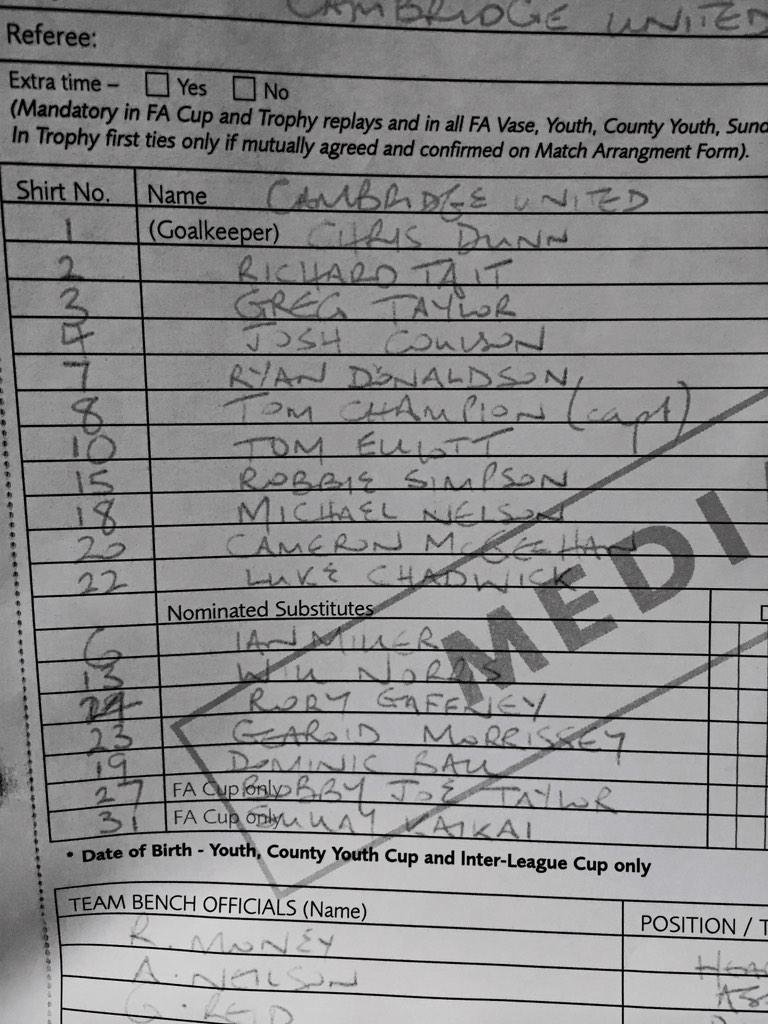 CAMBRIDGE UNITED
Referee:
Extra time – Yes No
(Mandatory in FA Cup and Trophy replays and in all FA Vase, Youth, County Youth, Sund
In Trophy first ties only if mutually agreed and confirmed on Match Arrangment Form).
Shirt No. Name CAMBRIDGE UNITED
1 (Goalkeeper) CHRIS DUNN
2 RICHARD TAIT
3 GREG TAYLOR
4 JOSH COULSON
7 RYAN DONALDSON
8 TOM CHAMPION (capt)
10 TOM ELLIOTT
15 ROBBIE SIMPSON
18 MICHAEL NELSON
20 CAMERON McGEEHAN
22 LUKE CHADWICK
Nominated Substitutes D
6 IAN MILLER
13 WILL NORRIS
RORY GAFFNEY
23 GEAROID MORRISSEY
19 DOMINIC BALL
27 FA Cup only BOBBY JOE TAYLOR
31 FA Cup only SULLAY KAIKAI
MEDI
* Date of Birth - Youth, County Youth Cup and Inter-League Cup only
TEAM BENCH OFFICIALS (Name) POSITION / T
R. MONEY HEA
A. NEILSON ASS
G. REID